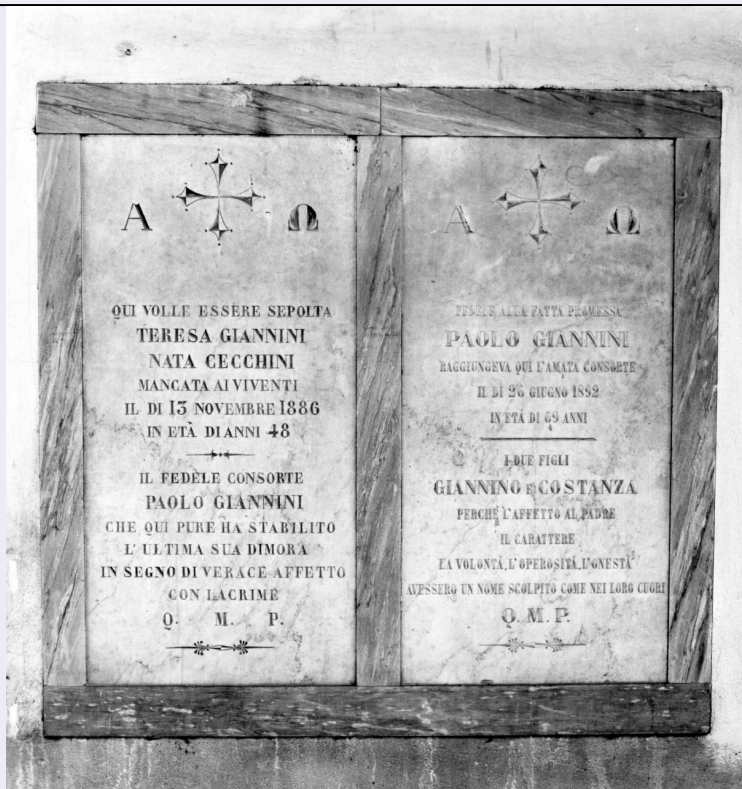 Α Ω
QUI VOLLE ESSERE SEPOLTA
TERESA GIANNINI
NATA CECCHINI
MANCATA AI VIVENTI
IL DI 13 NOVEMBRE 1886
IN ETÀ DI ANNI 48
IL FEDELE CONSORTE
PAOLO GIANNINI
CHE QUI PURE HA STABILITO
L'ULTIMA SUA DIMORA
IN SEGNO DI VERACE AFFETTO
CON LACRIME
Q. M. P.
Α Ω
FEDELE ALLA FATTA PROMESSA
PAOLO GIANNINI
RAGGIUNGEVA QUI L'AMATA CONSORTE
IL DÌ 26 GIUGNO 1892
IN ETÀ DI 69 ANNI
I DUE FIGLI
GIANNINO E COSTANZA
PERCHÈ L'AFFETTO AL PADRE
IL CARATTERE
LA VOLONTÀ, L'OPEROSITÀ, L'ONESTÀ
AVESSERO UN NOME SCOLPITO COME NEI LORO CUORI
Q. M. P.